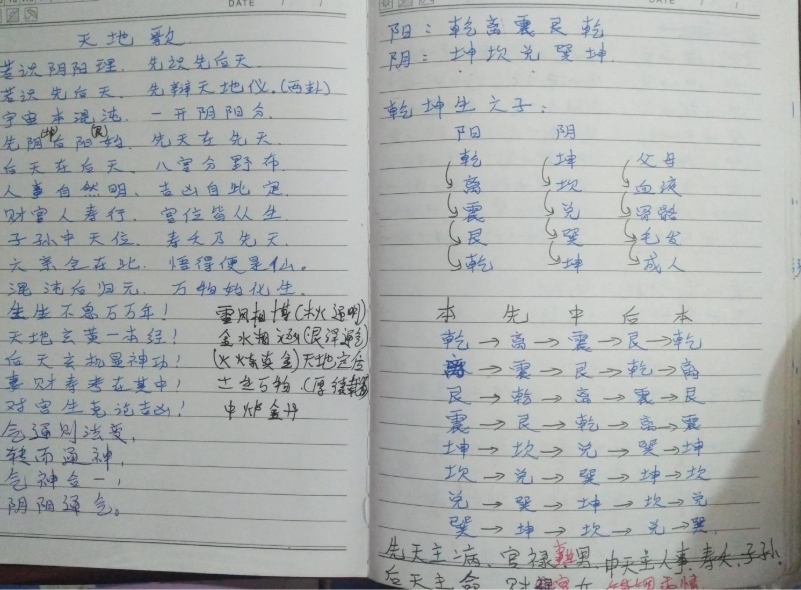 DATE
天地歌
若识阴阳理. 先识先后天.
若识先后天. 先辩天地仪.(两卦)
宇宙本混沌. 一开阴阳分.
先阴(坤)后阳(艮)始. 先天在先天.
后天在后天. 八宫分野布.
人事自然明. 吉凶自此定.
财官人寿行. 宫位皆从生.
子孙中天位. 寿夭乃先天.
六亲全在此. 悟得便是仙.
混沌后归元. 万物始化生.
生生不息万万年! 雷风相搏(木火通明)
天地玄黄一本经! 金水相涵
后天玄机显神功! (火炼真金)天地定位
妻财寿考在其中! 土生万物 (厚德载物)
财官生克论吉凶! 中
气通则法变,
转而通神,
气神合一,
阴阳通气。
DATE
阳: 乾离震艮乾
阴: 坤坎兑巽坤
乾坤生六子:
阳 阴
乾 坤 父母
离 坎 血液
震 兑 骨骼
艮 巽 毛发
乾 坤 成人
本 先 中 后 本
乾→离→震→艮→乾
离→震→艮→乾→离
艮→乾→离→震→艮
震→艮→乾→离→震
坤→坎→兑→巽→坤
坎→兑→巽→坤→坎
兑→巽→坤→坎→兑
巽→坤→坎→兑→巽
先天主:病、官禄、男、中天主人事.寿夭.子孙.
后天主 命 财 女